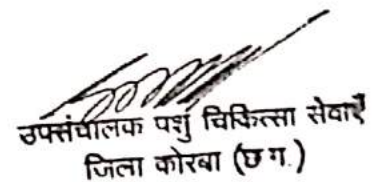 उपसंचालक पशु चिकित्सा सेवाएँ
जिला कोरबा (छ ग.)